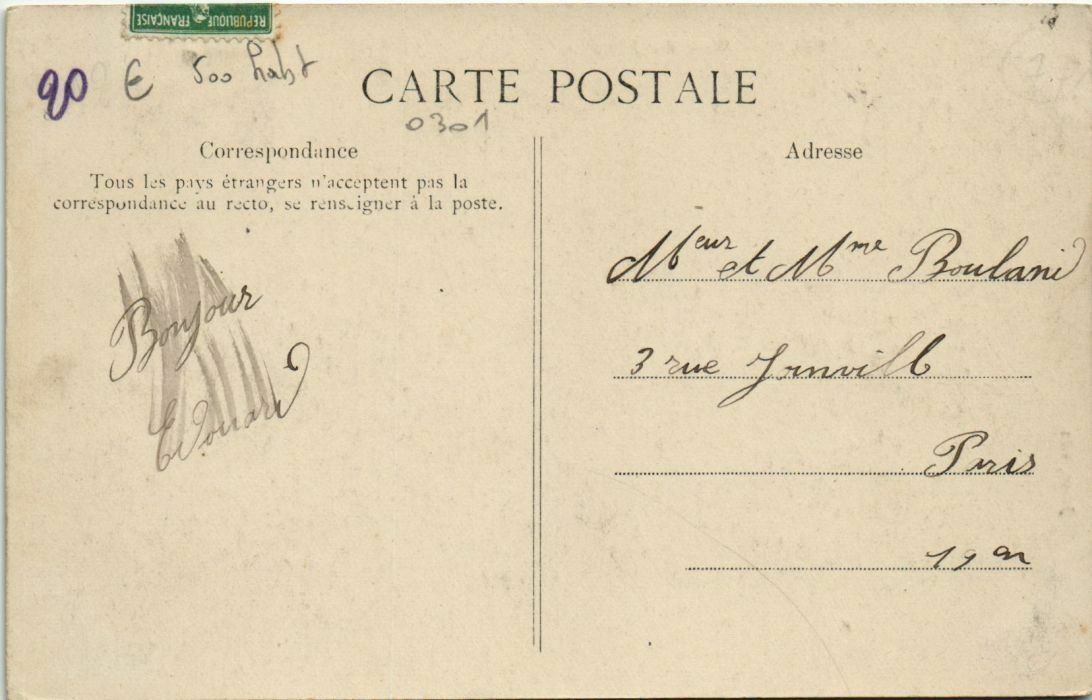 REPUBLIQUE FRANÇAISE
20 € 500 habt
CARTE POSTALE
0301
Correspondance
Tous les pays étrangers n'acceptent pas la
correspondance au recto, se renseigner à la poste.
Bonjour
Edouard
Adresse
Meur et Mme Boulanié
3 rue Joinvill
Paris
19 ar